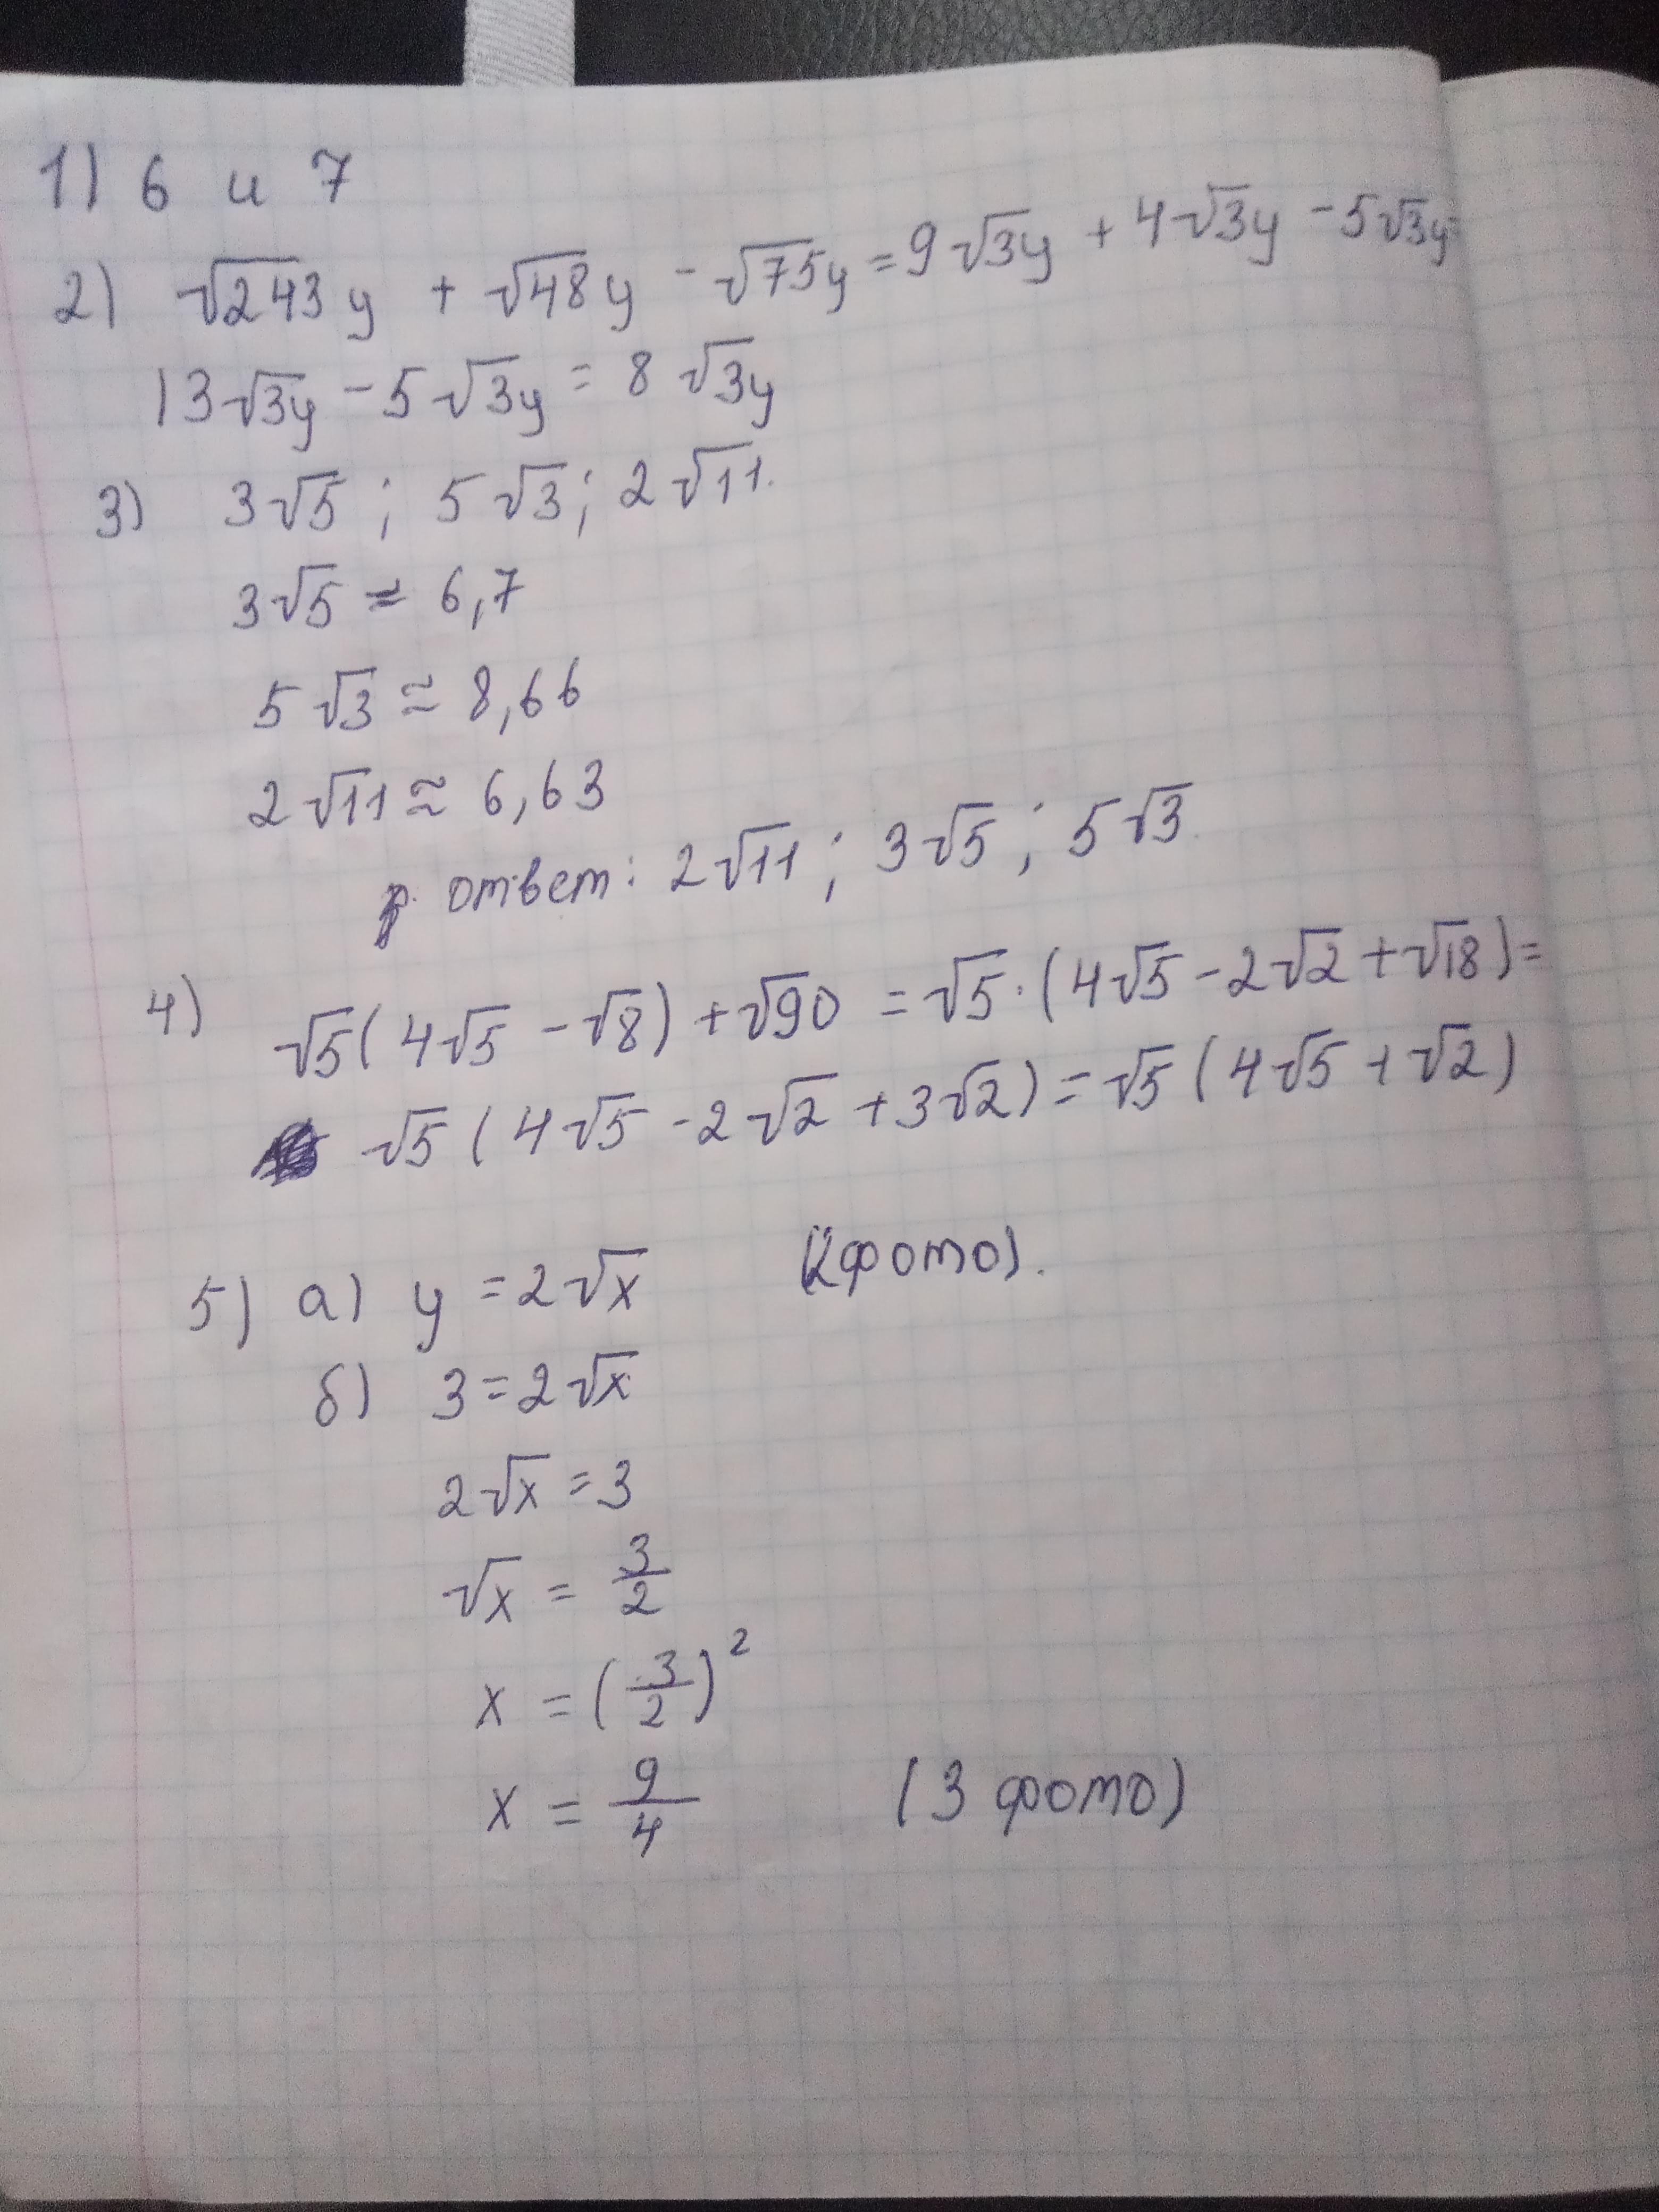 1) 6 и 7
2) √243y + √48y - √75y = 9√3y + 4√3y - 5√3y=
13√3y - 5√3y = 8√3y
3) 3√5 ; 5√3 ; 2√11.
3√5 ≈ 6,7
5√3 ≈ 8,66
2√11 ≈ 6,63
ответ: 2√11 ; 3√5 ; 5√3.
4) √5(4√5 - √8) + √90 = √5·(4√5 - 2√2 + √18)=
√5(4√5 - 2√2 + 3√2) = √5(4√5 + √2)
5) а) y = 2√x (2фото).
б) 3 = 2√x
2√x = 3
√x = 3/2
x = (3/2)²
x = 9/4 (3 фото)